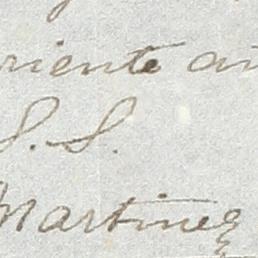 riente an
S. S.
Martinez